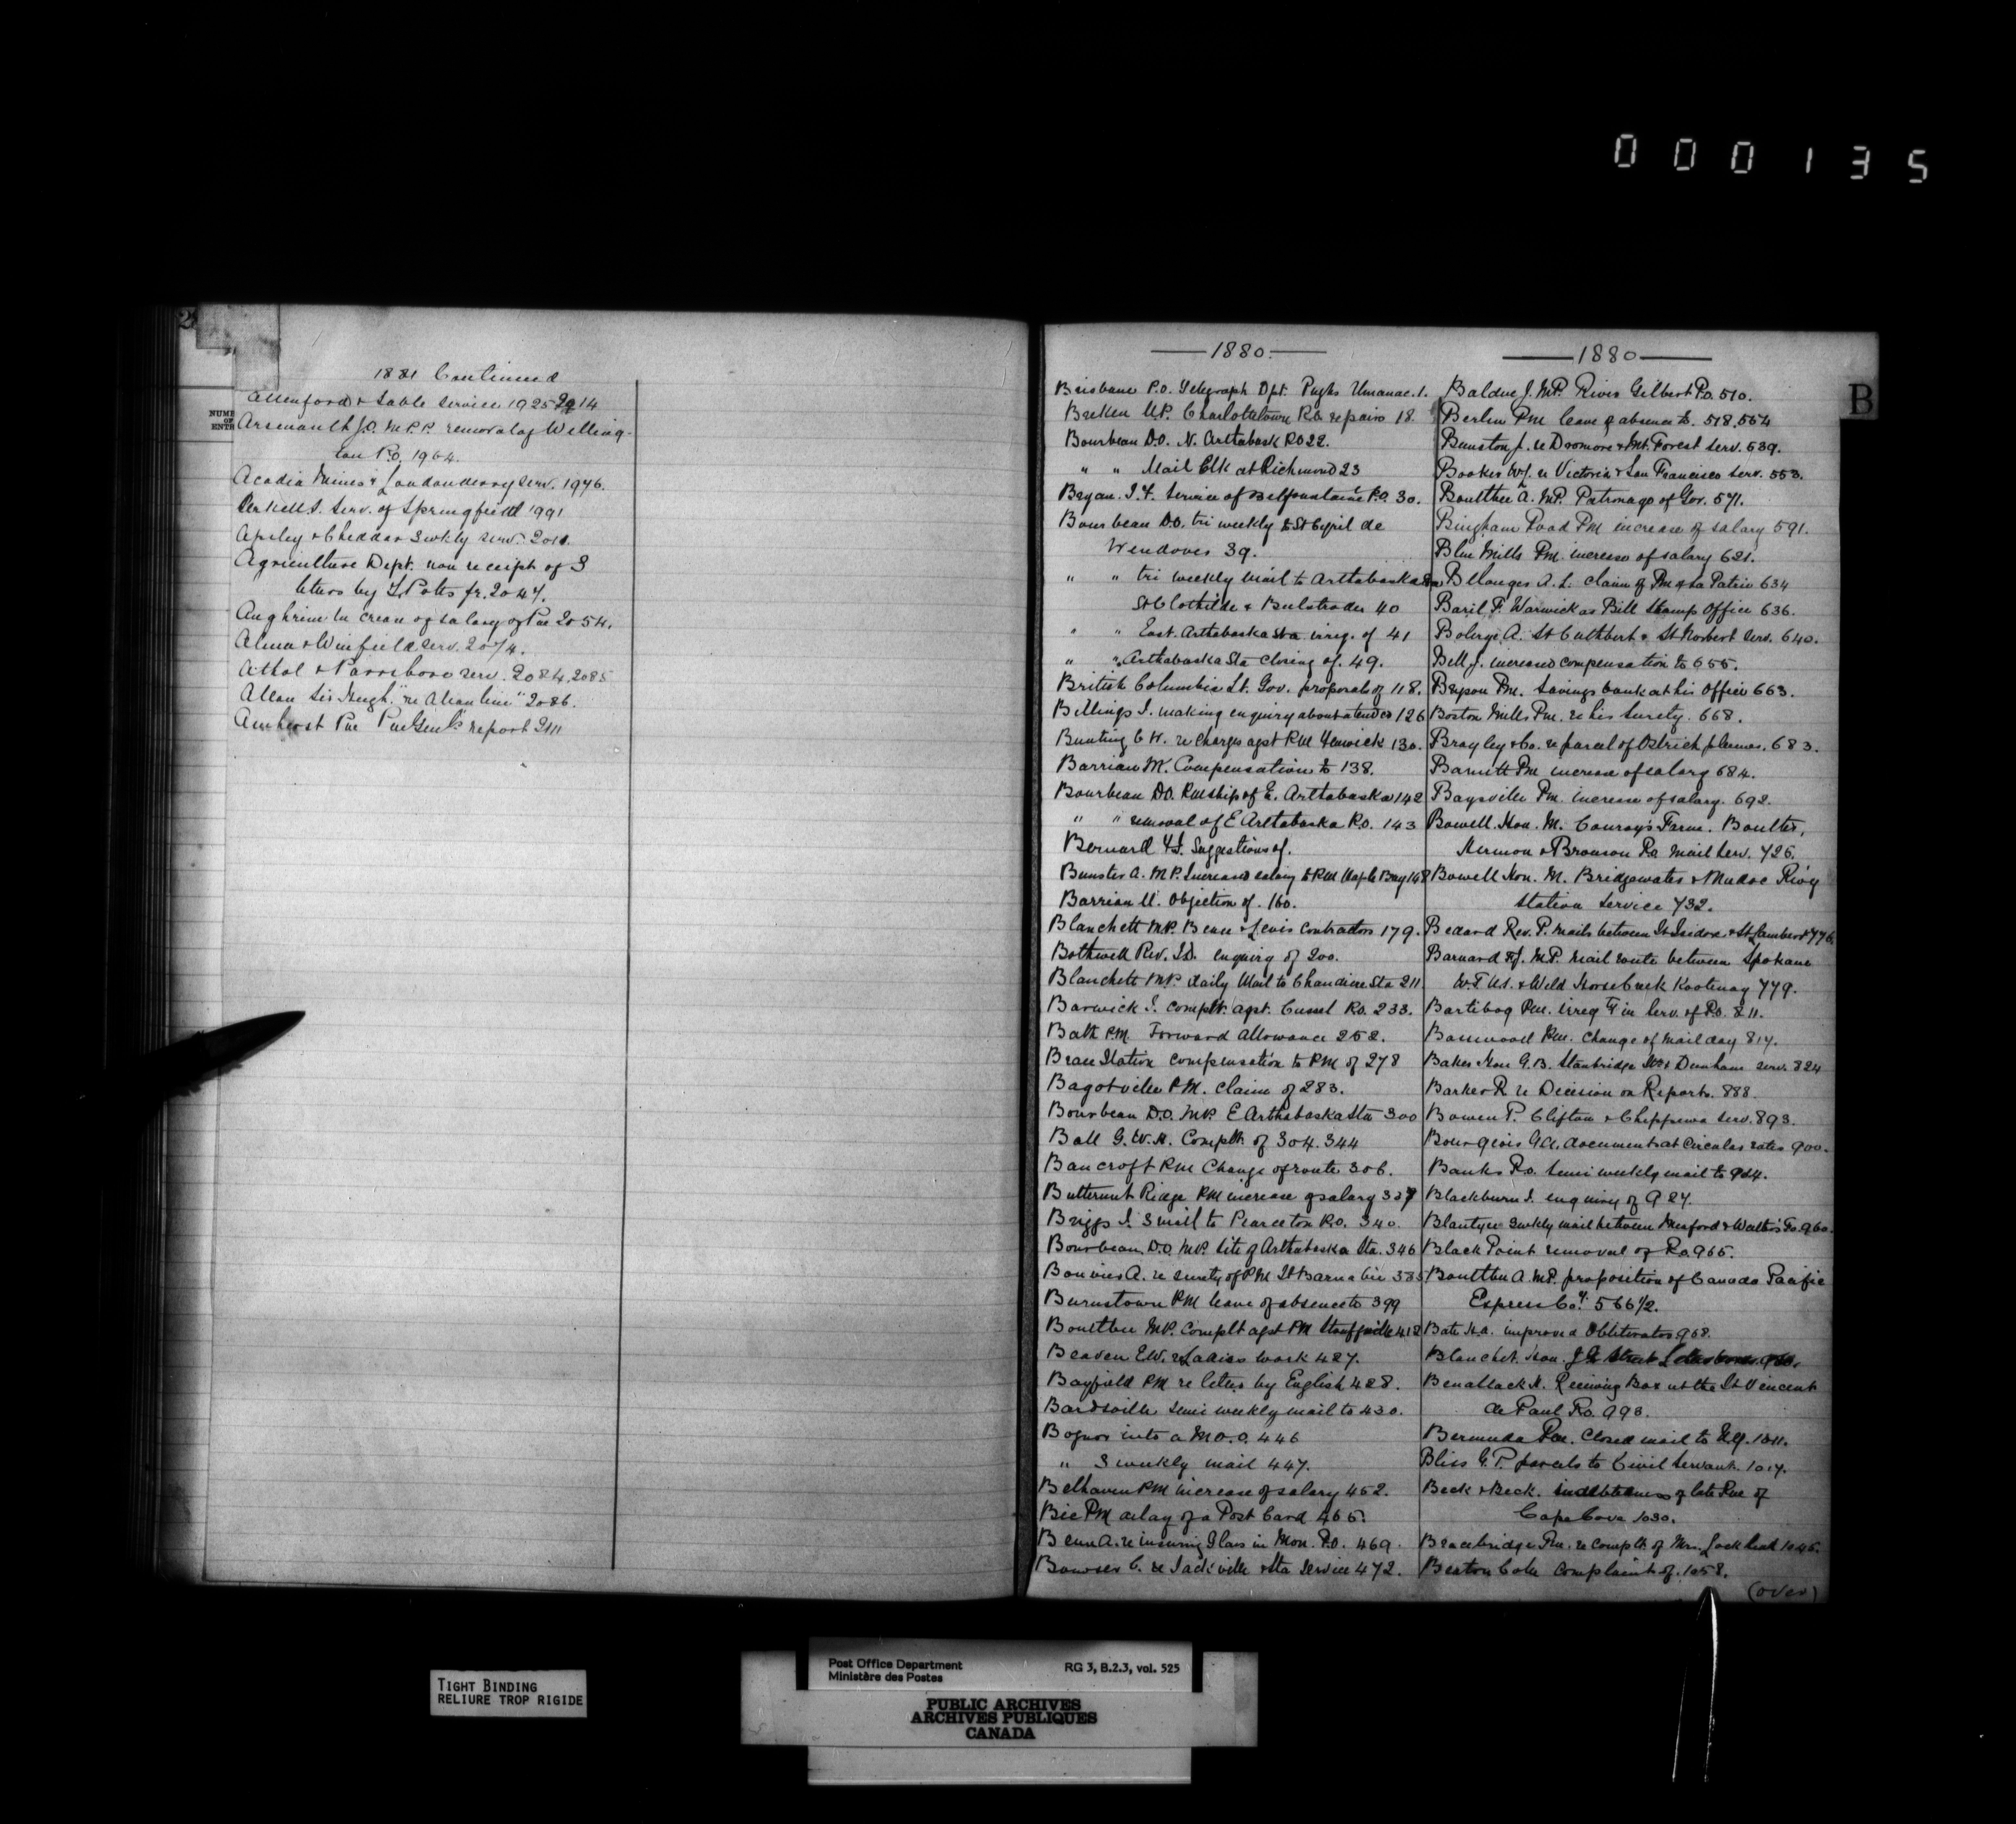 0 0 0 1 3 5
2
1881 Continued
Allenford & Sable service 1925 2914
NUMB
OF
ENTR
Arsenault J.O. M.P.P. removal of Welling-
ton P.O. 1964.
Acadia Mines & Londonderry serv. 1976.
J. serv. of Springfield 1991
Apsley & Cheddar 3 wkly serv. 2010.
Agriculture Dept. non receipt of 3
letters by Potts fr. 2047.
Aughrim increase of salary of Pm 2054.
Alma & Winfield serv. 2074.
Athol & Parrsboro serv. 2084, 2085
Allan Sir Hugh "re Allan line" 2086.
Amherst Pm report 2111
B
1880
Brisbane P.O. Telegraph Dpt. Pughs Almanac. 1.
Brecken M.P. Charlottetown P.O. repairs 18.
Bourbeau D.O. N. Arthabask P.O 22.
" " Mail Clk at Richmond 23
Bryan. J.Y. Service of Belfountain P.O 30.
Bourbeau D.O. tri weekly to St Cyril de
Wendover 39.
" " tri weekly mail to Arthabaska Sta
St Clothilde & Bulstrode 40
" " East Arthabaska Sta irreg. of 41
" " Arthabaska Sta closing of. 49.
British Columbia Lt. Gov. proposals of 118.
Billings J. making enquiry about a tender 126
Bunting C W. re charges agst P.M Fenwick 130.
Barrian M. Compensation to 138.
Bourbeau D.O. Pmship of E. Arthabaska 142
" " removal of E Arthabaska P.O. 143
Bernard Suggestions of.
Bunster A. M.P. Increased salary to P.M Maple Bay 148
Barrian M. Objection of. 160.
Blanchett M.P. Beauce & Levis Contractors 179.
Bothwell Rev. J.D. enquiry of 200.
Blanchett M.P. daily Mail to Chaudiere Sta 211
Barwick J. complt. agst. Cassel P.O. 233.
Bath P.M. Forward Allowance 252.
Bran Station compensation to PM of 278
Bagotville P.M. Claim of 283.
Bourbeau D.O. M.P. E Arthabaska Sta 300
Ball G.W.H. Complt. of 304. 344
Bancroft P.M Change of route 306.
Butternut Ridge P.M increase of salary 337
Briggs J. 3 mail to Pearceton P.O. 340.
Bourbeau, D.O. M.P. Site of Arthabaska Sta. 346
Bouvier A. re surety of P.M St Barnabie 385
Burnstown P.M leave of absence to 399
Boultbee M.P. Complt agst PM Stouffville 412
Beaven E.W. re Ladies work 427.
Bayfield P.M re letter by English 428.
Bardsville semi weekly mail to 430.
Bognor into a M.O.O. 446
" 3 weekly mail 447.
Belhaven P.M increase of salary 452.
Bic P.M delay of a Post Card 465.
Benn A. re insuring Glass in Mon. P.O. 469.
Bowser C. re Sackville & Sta Service 472.
1880
Balduc J. M.P. River Gilbert P.O. 510.
Berlin P.M leave of absence to. 518, 554
Bunston J. re Dromore & Mt. Forest serv. 539.
Booker W.J. re Victoria & San Francisco serv. 553.
Boultbee A. M.P. Patronage of Gov. 571.
Bingham Road P.M increase of salary 591.
Blue Mills P.M. increase of salary 621.
Bellanger A.L. claim of P.M of La Patrie 634
Baril F. Warwick as Bill Stamp Office 636.
A. St Cuthbert & St Norbert serv. 640.
Bell J. increased compensation to 655.
Bryson P.M. Savings bank at his Office 663.
Boston Mills P.M. re his Surety. 668.
Brayley & Co. re parcel of Ostrich plumes. 683.
Barnitt P.M increase of salary 684.
Baysville P.M. increase of salary. 692.
Bowell Hon. M. Conroy's Farm. Boulter,
Hermon & Bronson P.O. mail serv. 726.
Bowell Hon. M. Bridgewater & Madoc Rwy
Station Service 732.
Bedard Rev. P. mails between St Isidore & St Lambert 776
Barnard F.J. M.P. mail route between Spokane
W.T. U.S. & Wild Horse Creek Kootenay 779.
Bartibog P.M. irregty in serv. of P.O. 811.
Bamwood P.M. change of mail day 814.
Baker Hon G.B. Stanbridge Sta & Dunham serv. 824
Barker R. re Decision on Reports. 888.
Bowen P. Clifton & Chippewa Serv. 893.
Bourgeois G.A. documents at Circular rates 900.
Banks P.O. semi weekly mail to 924.
Blackburn J. enquiry of 927.
Blantyre 3 wkly mail between Meaford & Walter's Fs. 960.
Black Point removal of P.O. 965.
Boultbee A. M.P. proposition of Canada Pacific
Express Coy. 566 1/2.
Bate H.A. improved Obliterator 968.
Blanchet. Hon. J G Street Letter boxes. 980.
Benallack H. Receiving Box at the St Vincent
de Paul P.O. 993.
Bermuda P.M. Closed mail to N.Y. 1011.
Bliss G.P. parcels to Civil Servants. 1017.
Beck & Beck. indebtedness of late P.M of
Cape Cove 1030.
Bracebridge P.M. re complt. of Mrs. Lockhart 1045.
Berton Cole complaint of. 1058.
(over)
TIGHT BINDING
RELIURE TROP RIGIDE
Post Office Department
Ministère des Postes
RG 3, B.2.3, vol. 525
PUBLIC ARCHIVES
ARCHIVES PUBLIQUES
CANADA